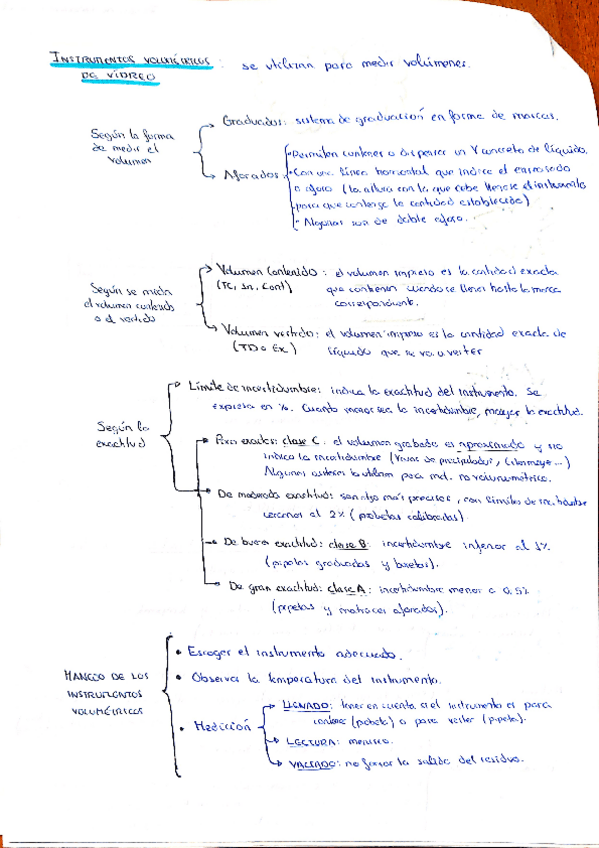 INSTRUMENTOS VOLUMÉTRICOS : se utilizan para medir volúmenes.
DE VIDRIO
Según la forma
de medir el
volumen
Graduados: sistema de graduación en forma de marcas.
Aforados
• Permiten contener o dispensar un V concreto de líquido.
• Con una línea horizontal que indica el enrasado
o aforo (la altura con la que debe llenarse el instrumento
para que contenga la cantidad establecida)
• Algunos son de doble aforo.
Según se mida
el volumen contenido
o el vertido
Volumen contenido : el volumen impreso es la cantidad exacta
(TC, In, Cont) que contienen cuando se llenan hasta la marca
correspondiente.
Volumen vertido: el volumen impreso es la cantidad exacta de
(TD o Ex) líquido que se va a verter
Según la
exactitud
Límite de incertidumbre: indica la exactitud del instrumento. Se
expresa en %. Cuando menor sea la incertidumbre, mayor la exactitud.
Poco exactos: clase C: el volumen grabado es aproximado y no
indica la incertidumbre (Vasos de precipitados, Erlenmeyer...)
Algunos autores lo utilizan para mat. no volumétrico.
De moderada exactitud: son algo más precisos, con límites de incertidumbre
cercanos al 2% (probetas calibradas)
De buena exactitud: clase B: incertidumbre inferior al 1%
(pipetas graduadas y buretas).
De gran exactitud: clase A: incertidumbre menor a 0.5%
(pipetas y matraces aforados).
MANEJO DE LOS
INSTRUMENTOS
VOLUMÉTRICOS
• Escoger el instrumento adecuado.
• Observar la temperatura del instrumento.
• Medición
LLENADO: tener en cuenta si el instrumento es para
contener (probeta) o para verter (pipeta).
LECTURA: menisco.
VACIADO: no forzar la salida del residuo.